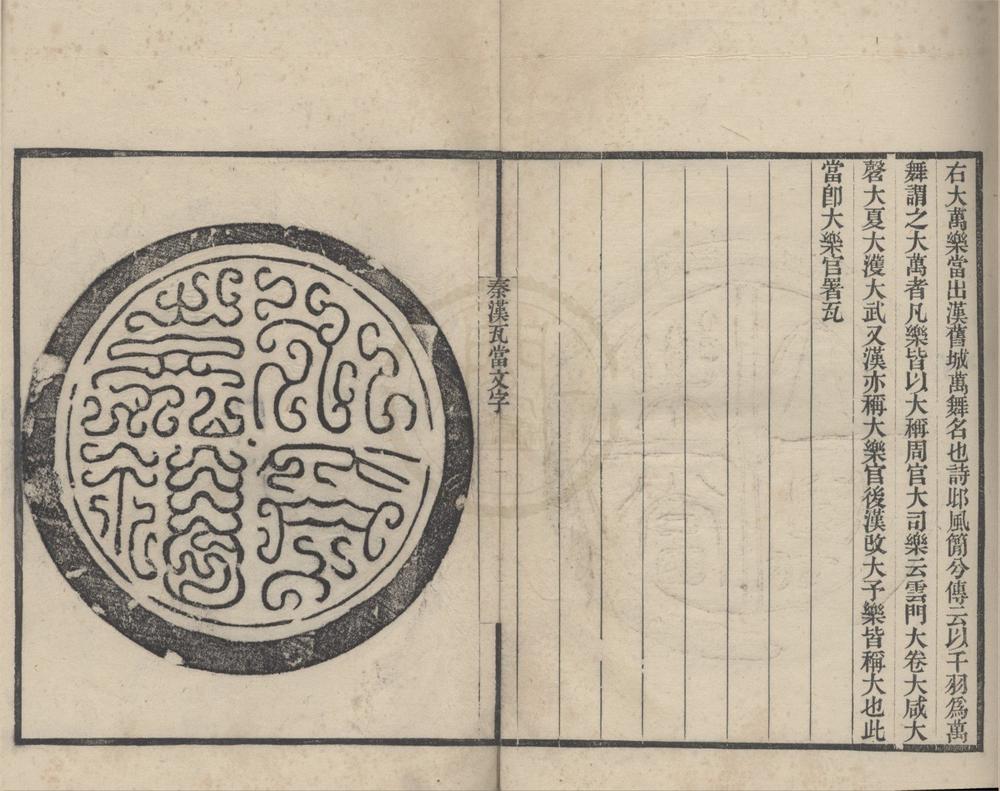 右大萬樂當出漢舊城萬舞名也詩邶風簡兮傳云以干羽爲萬
舞謂之大萬者凡樂皆以大稱周官大司樂云雲門大卷大咸大
磬大夏大濩大武又漢亦稱大樂官後漢改大予樂皆稱大也此
當卽大樂官署瓦
秦漢瓦當文字